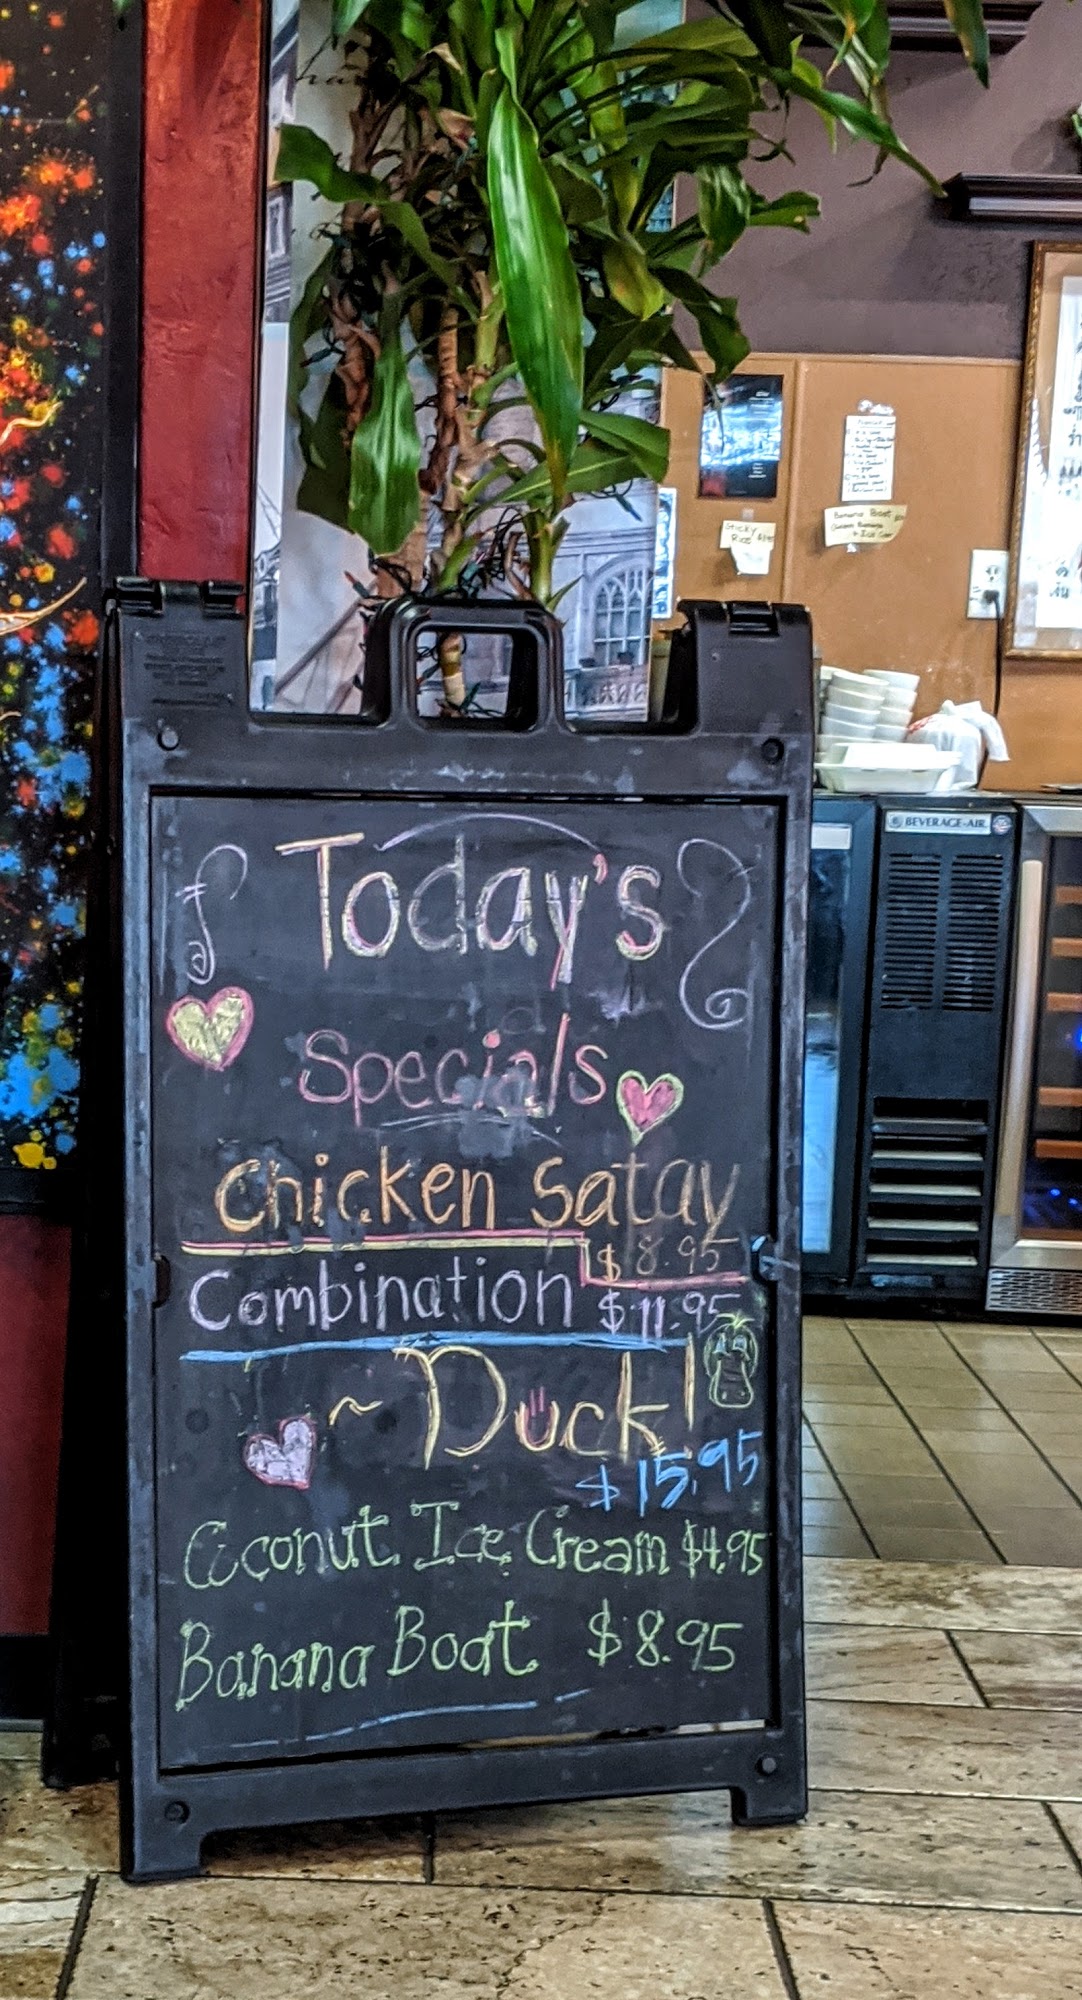 Today's
Specials
Chicken Satay
$8.95
Combination $11.95
~ Duck!
$15.95
Coconut Ice Cream $4.95
Banana Boat $8.95
BEVERAGE-AIR
Sticky
Rice
Banana Boat